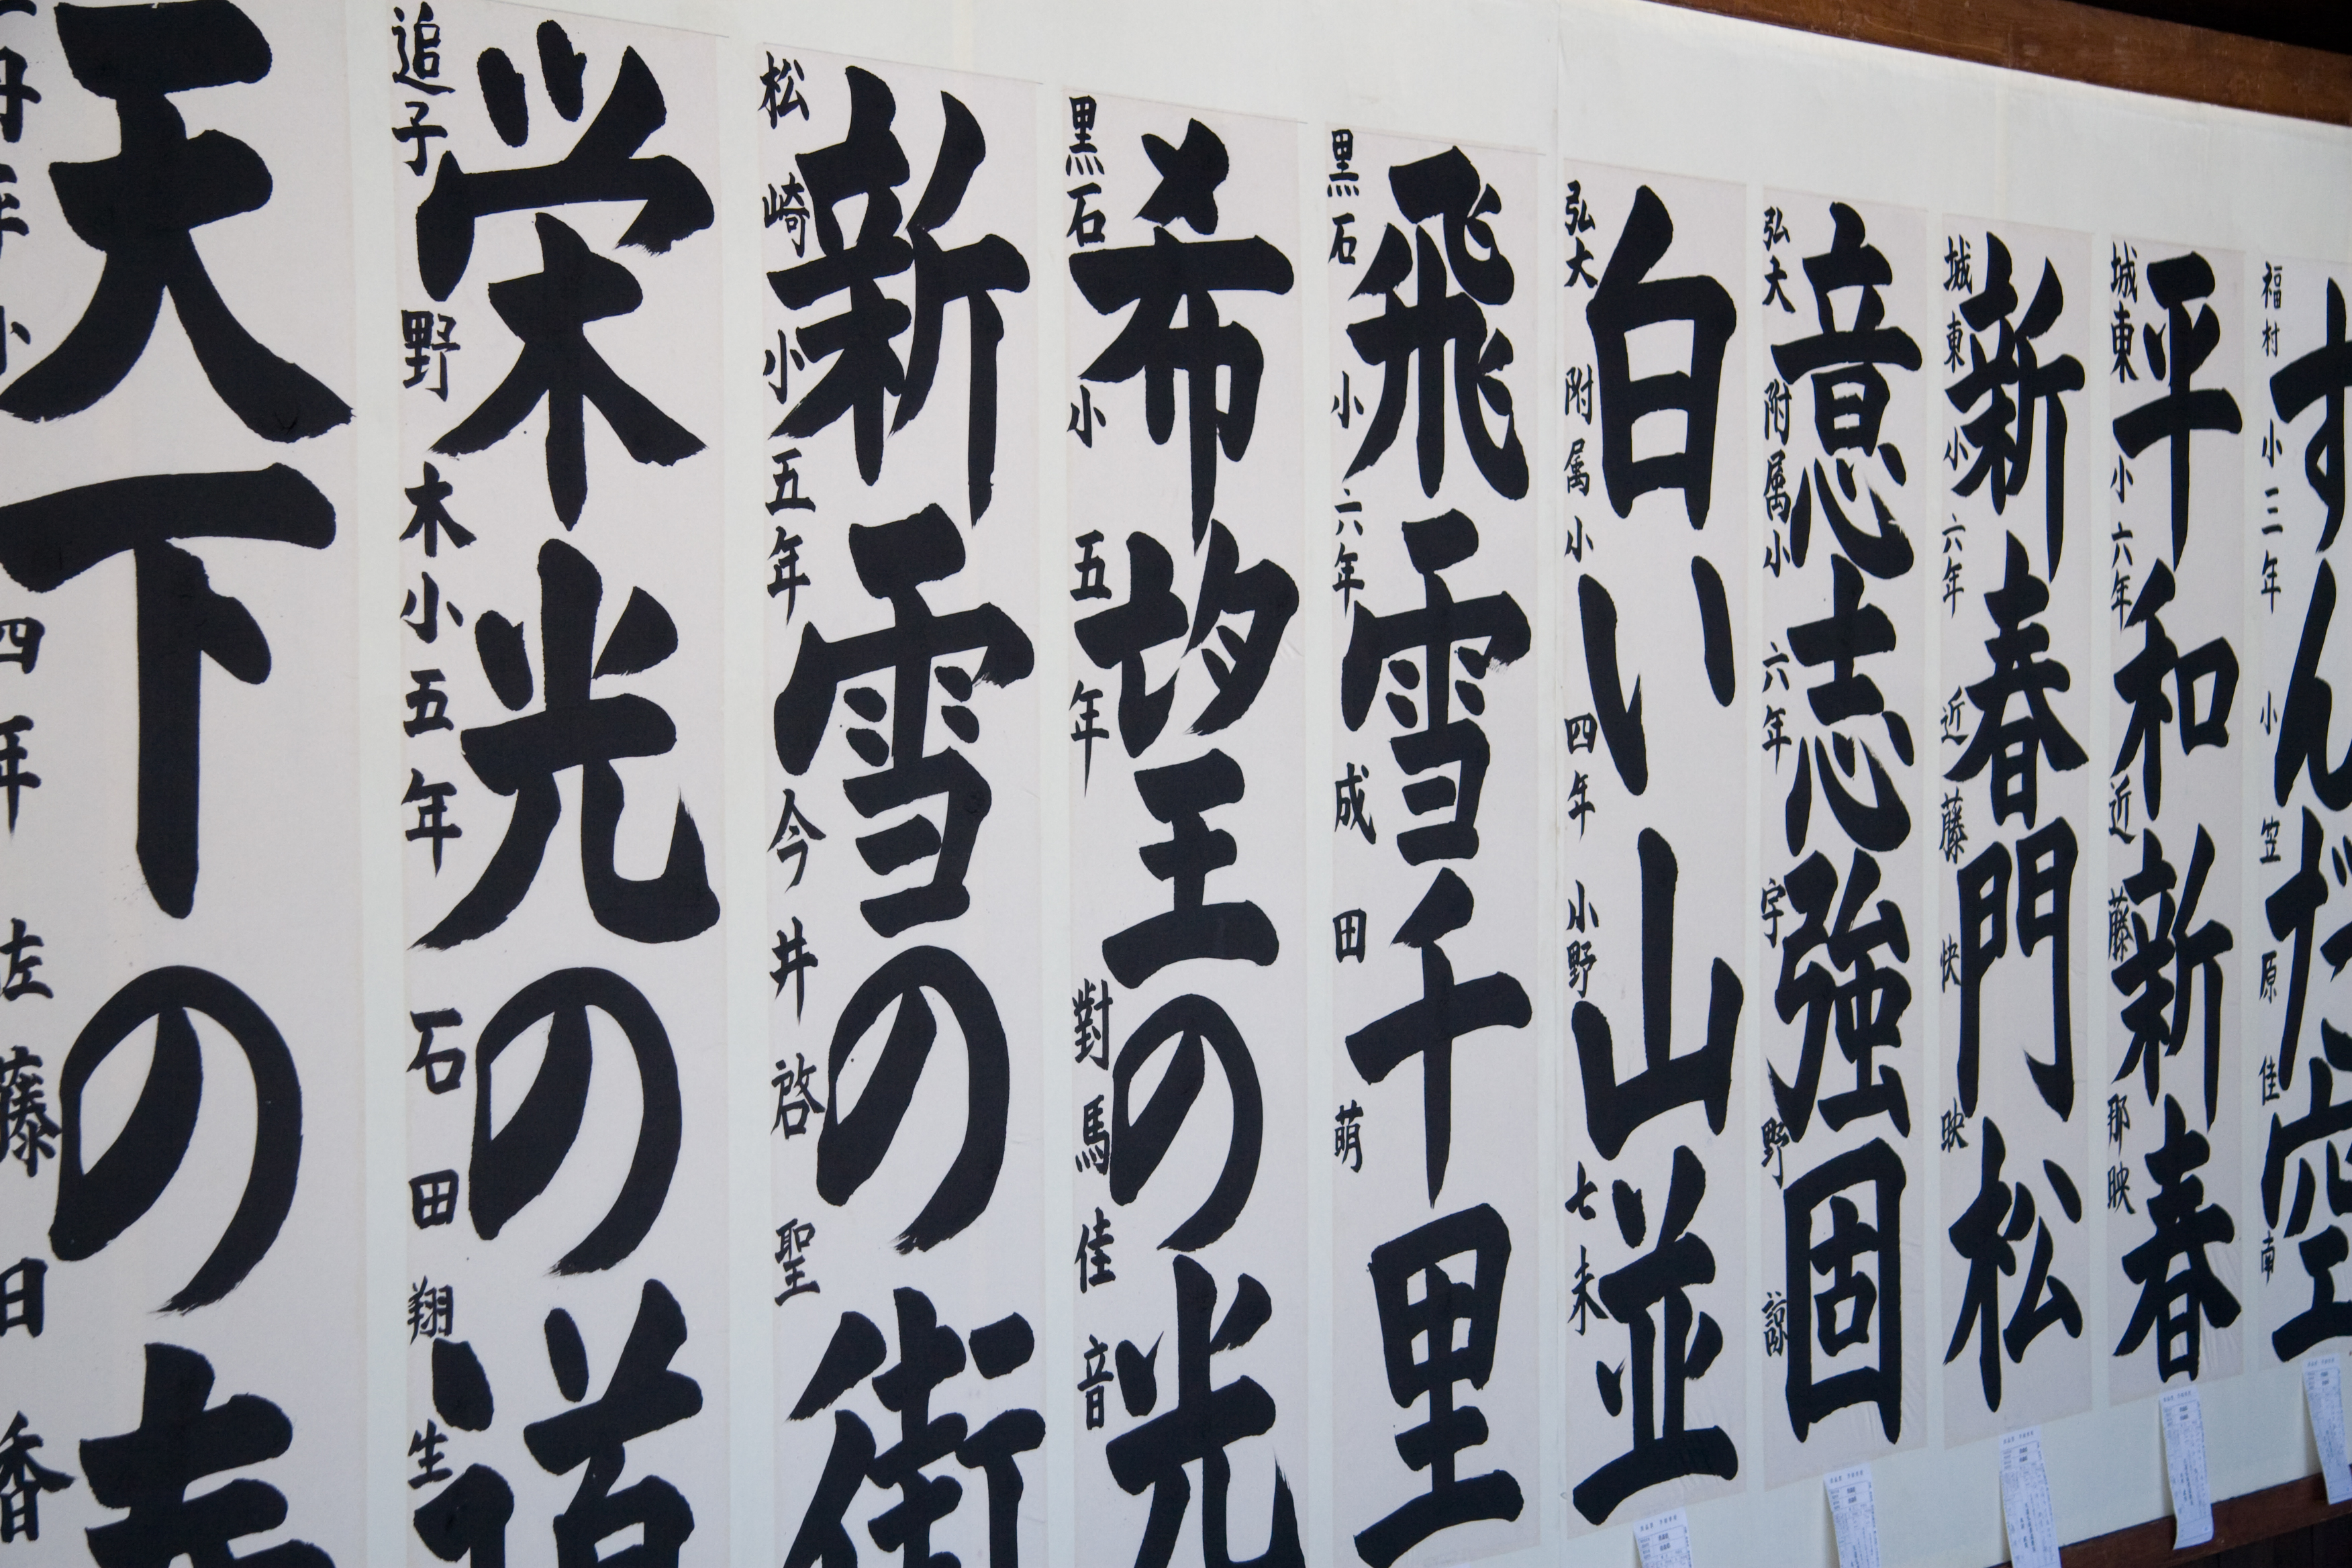 すんだ空
福村小三年 小笠原佳南
平和新春
城東小六年 近藤那映
新春門松
城東小六年 近藤快映
意志強固
弘大附属小六年 宇野諒
白い山並
弘大附属小四年 小野七未
飛雪千里
黒石小六年 成田萌
希望の光
黒石小五年 對馬佳音
新雪の街
松崎小五年 今井啓聖
栄光の道
追子野木小五年 石田翔生
天下の
小四年 佐藤 香